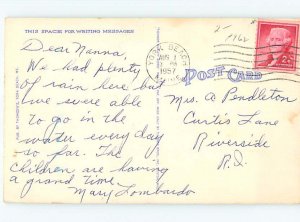 THIS SPACE FOR WRITING MESSAGES
Dear Nanna,
We had plenty
of rain here but
we were able
to go in the
water every day
so far. The
children are having
a grand time.
Mary Lombardo
YORK BEACH
AUG
PM
1957
POST CARD
Mrs. A Pendleton
Curtis Lane
Riverside
R.I.
2¢